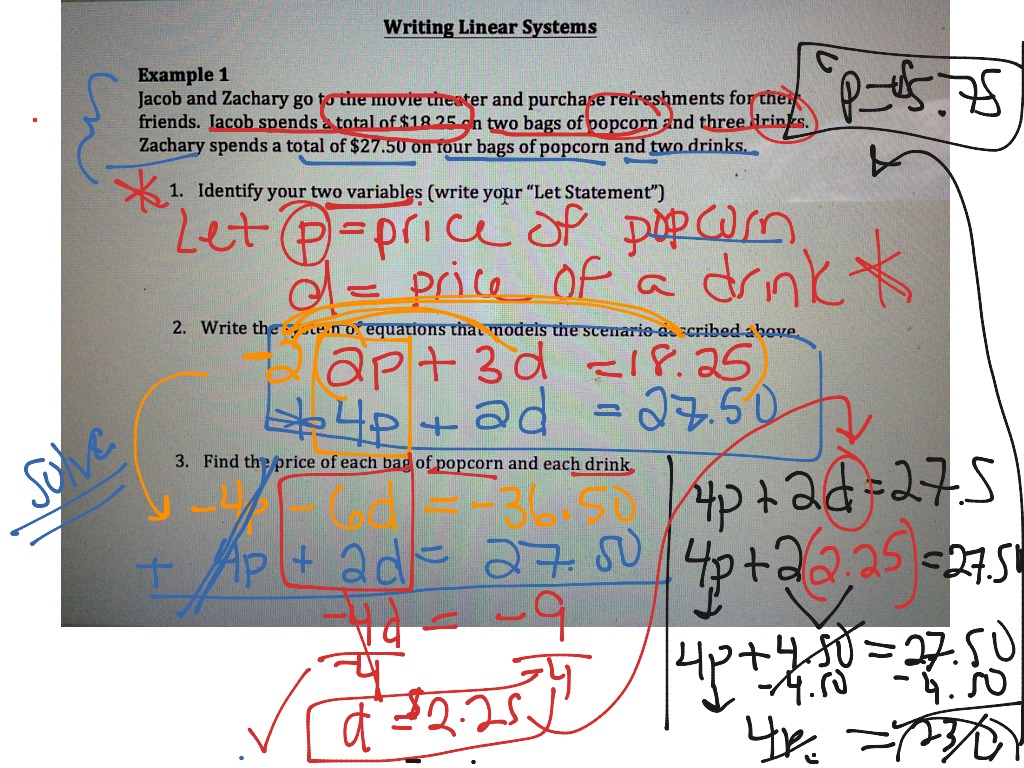 Writing Linear Systems
Example 1
Jacob and Zachary go to the movie theater and purchase refreshments for their
friends. Jacob spends a total of $18.25 on two bags of popcorn and three drinks.
Zachary spends a total of $27.50 on four bags of popcorn and two drinks.
1. Identify your two variables (write your “Let Statement”)
Let p = price of popcorn
d = price of a drink
2. Write the system of equations that models the scenario described above.
-2 2p + 3d = 18.25
+ 4p + 2d = 27.50
solve
3. Find the price of each bag of popcorn and each drink
-4p - 6d = -36.50
+ 4p + 2d = 27.50
-4d = -9
-4 -4
d = $2.25
4p + 2d = 27.5
4p + 2(2.25) = 27.50
4p + 4.50 = 27.50
-4.50 -4.50
4p = 23
p = 5.75